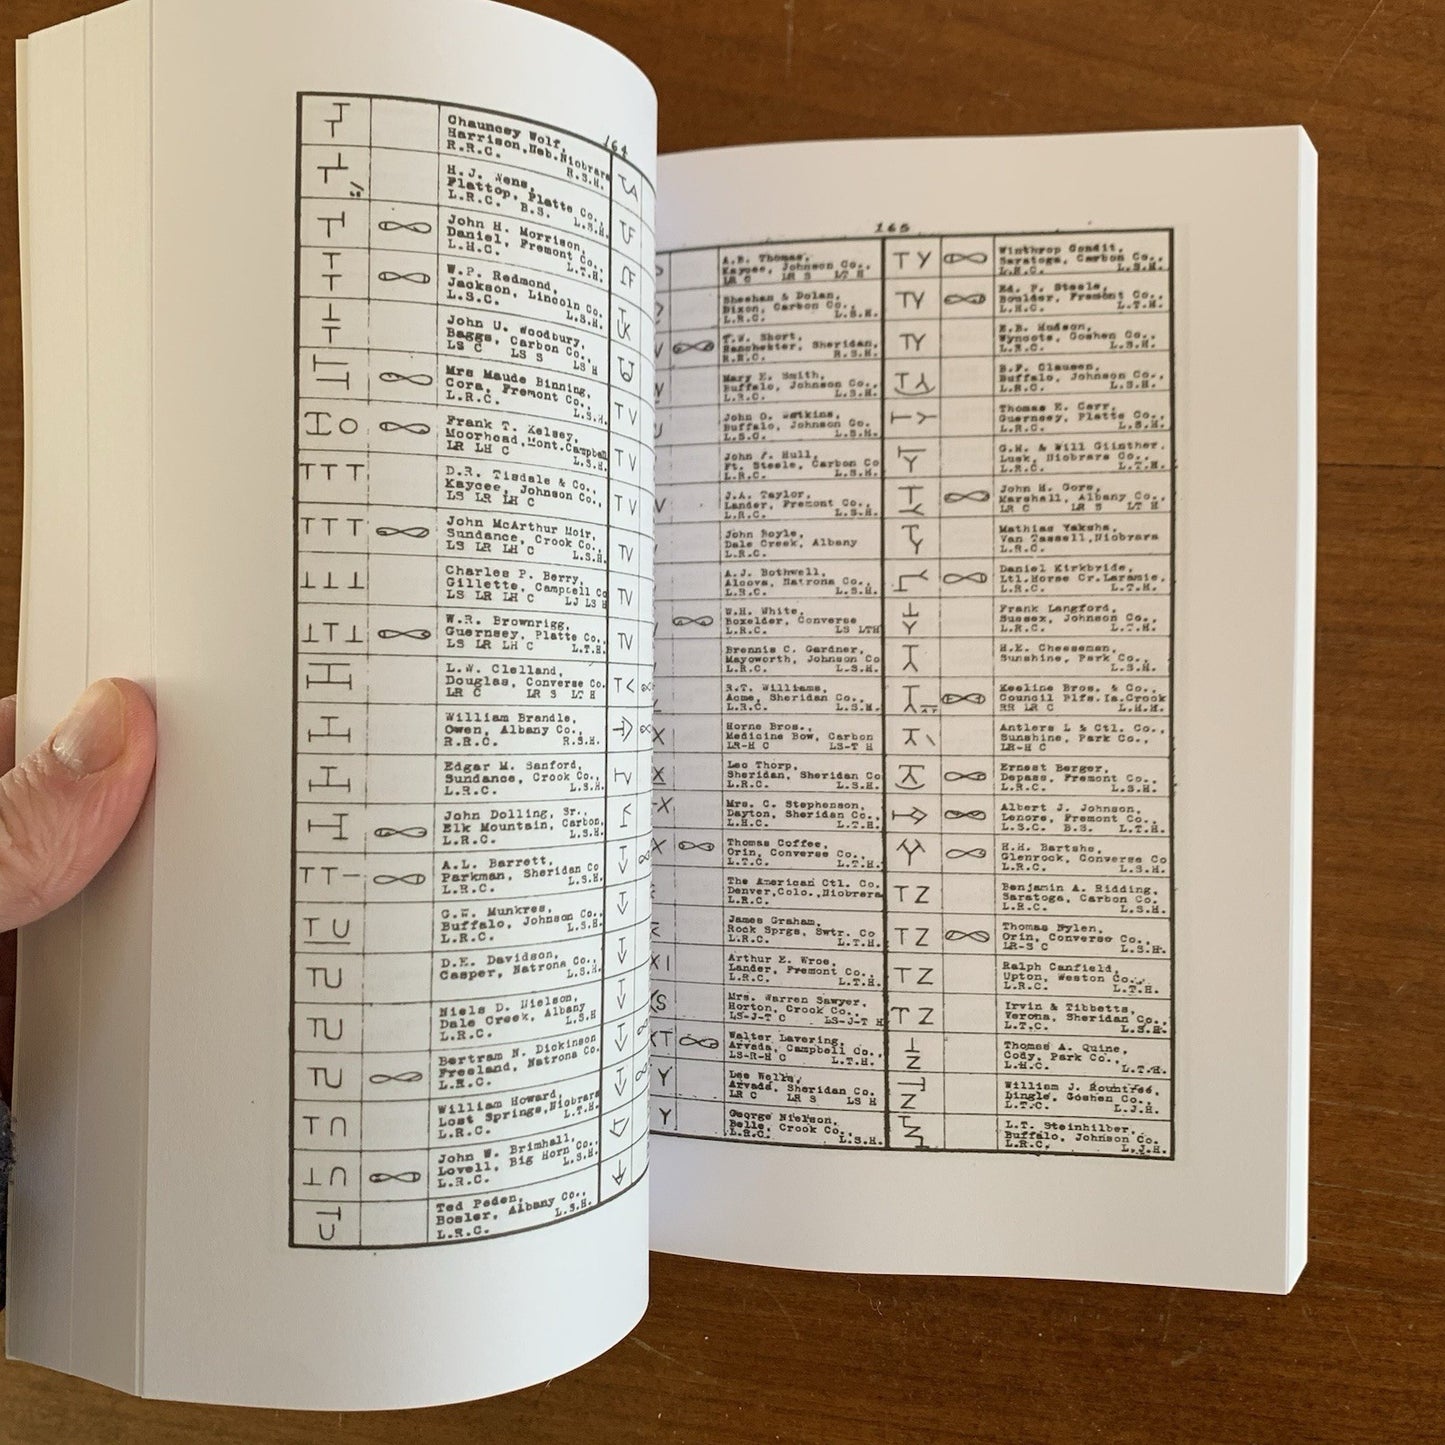 164
Chauncey Wolf,
Harrison, Neb. Niobrara
R.R.C. R.S.H.
H.J. Wens,
Flattop, Platte Co.,
L.R.C. B.S. L.S.H.
John H. Morrison,
Daniel, Fremont Co.,
L.H.C. L.T.H.
W.P. Redmond,
Jackson, Lincoln Co.
L.S.C. L.S.H.
John U. Woodbury,
Baggs, Carbon Co.,
LS C LS S LS H
Mrs Maude Binning,
Cora, Fremont Co.,
L.R.C. L.S.H.
Frank T. Kelsey,
Moorhead, Mont. Campbell
LR LH C L.S.H.
D.R. Tisdale & Co.,
Kaycee, Johnson Co.,
LS LR LH C
John McArthur Moir,
Sundance, Crook Co.,
LS LR LH C L.S.H.
Charles P. Berry,
Gillette, Campbell Co
LS LR LH C LJ LS H
W.R. Brownrigg,
Guernsey, Platte Co.,
LS LR LH C L.T.H.
L.W. Clelland,
Douglas, Converse Co.
LR C LR S LT H
William Brandle,
Owen, Albany Co.,
R.R.C. R.S.H.
Edgar M. Sanford,
Sundance, Crook Co.,
L.R.C. L.S.H.
John Dolling, Sr.,
Elk Mountain, Carbon,
L.R.C. L.S.H.
A.L. Barrett,
Parkman, Sheridan Co
L.R.C. L.S.H.
TU
G.W. Munkres,
Buffalo, Johnson Co.,
L.R.C. L.S.H.
D.E. Davidson,
Casper, Natrona Co.,
L.S.H.
Niels D. Nielson,
Dale Creek, Albany
L.R.C. L.S.H
Bertram N. Dickinson
Freeland, Natrona Co.
L.R.C.
William Howard,
Lost Springs, Niobrara
L.R.C. L.T.H.
John W. Brimhall,
Lovell, Big Horn Co.,
L.R.C. L.S.H.
Ted Peden,
Bosler, Albany Co.,
L.R.C. L.S.H.
TV
TV
TV
TV
TV
TV
165
A.B. Thomas,
Kaycee, Johnson Co.,
LR C LR S LT H
Sheehan & Dolan,
Dixon, Carbon Co.,
L.R.C. L.S.H.
T.W. Short,
Ranchester, Sheridan,
R.R.C. R.S.H.
Mary E. Smith,
Buffalo, Johnson Co.,
L.R.C. L.S.H.
John O. Watkins,
Buffalo, Johnson Co.
L.S.C. L.S.H.
John F. Hull,
Ft. Steele, Carbon Co
L.R.C. L.S.H.
J.A. Taylor,
Lander, Fremont Co.,
L.R.C. L.S.H.
John Boyle,
Dale Creek, Albany
L.R.C.
A.J. Bothwell,
Alcova, Natrona Co.,
L.R.C. L.S.H.
W.H. White,
Boxelder, Converse
L.R.C. LS LTH
Brennis C. Gardner,
Mayoworth, Johnson Co
L.R.C. L.S.H.
R.T. Williams,
Acme, Sheridan Co.,
L.R.C. L.S.H.
Horne Bros.,
Medicine Bow, Carbon
LR-H C LS-T H
Leo Thorp,
Sheridan, Sheridan Co
L.R.C. L.S.H.
Mrs. C. Stephenson,
Dayton, Sheridan Co.,
L.H.C. L.T.H.
Thomas Coffee,
Orin, Converse Co.,
L.T.C. L.T.H.
The American Ctl. Co.
Denver, Colo., Niobrara
L.R.C.
James Graham,
Rock Sprgs, Swtr. Co
L.R.C. L.T.H.
Arthur E. Wroe,
Lander, Fremont Co.,
L.R.C. L.T.H.
Mrs. Warren Sawyer,
Horton, Crook Co.,
LS-J-T C LS-J-T H
Walter Lavering,
Arvada, Campbell Co.,
LS-R-H C L.T.H.
Lee Wells,
Arvada, Sheridan Co.
LR C LR S LS H
George Nielson,
Belle, Crook Co.,
L.R.C. L.S.H.
TY
Winthrop Condit,
Saratoga, Carbon Co.,
L.H.C. L.S.H.
TY
Ed. P. Steele,
Boulder, Fremont Co.,
L.H.C. L.T.H.
TY
E.B. Hudson,
Wyncote, Goshen Co.,
L.R.C. L.S.H.
B.F. Clausen,
Buffalo, Johnson Co.,
L.R.C. L.S.H.
Thomas E. Carr,
Guernsey, Platte Co.,
L.R.C. L.S.H.
G.H. & Will Günther.
Lusk, Niobrara Co.,
L.R.C. L.T.H.
John H. Gore,
Marshall, Albany Co.,
LR C LR S LT H
Mathias Yaksha,
Van Tassell, Niobrara
L.R.C.
Daniel Kirkbride,
Ltl. Horse Cr. Laramie.
L.R.C. L.T.H.
Frank Langford,
Sussex, Johnson Co.,
L.R.C. L.T.H.
H.E. Cheeseman,
Sunshine, Park Co.,
L.S.H.
Keeline Bros. & Co.,
Council Blfs. Ia. Crook
RR LR C L.H.H.
Antlers L & Ctl. Co.,
Sunshine, Park Co.,
LR-H C
Ernest Berger,
Depass, Fremont Co.,
L.R.C. L.S.H.
Albert J. Johnson,
Lenore, Fremont Co.,
L.S.C. B.S. L.T.H.
H.H. Bartshe,
Glenrock, Converse Co
L.R.C. L.S.H.
TZ
Benjamin A. Ridding,
Saratoga, Carbon Co.
L.R.C. L.S.H.
TZ
Thomas Nylen,
Orin, Converse Co.,
LR-S C L.S.H.
TZ
Ralph Canfield,
Upton, Weston Co.,
L.R.C. L.T.H.
TZ
Irvin & Tibbetts,
Verona, Sheridan Co.,
L.T.C. L.S.H.
Thomas A. Quine,
Cody, Park Co.,
L.H.C. L.T.H.
William J. Rountree,
Dingle, Goshen Co.,
L.T.C. L.J.H.
L.T. Steinhilber,
Buffalo, Johnson Co.
L.R.C. L.T.H.